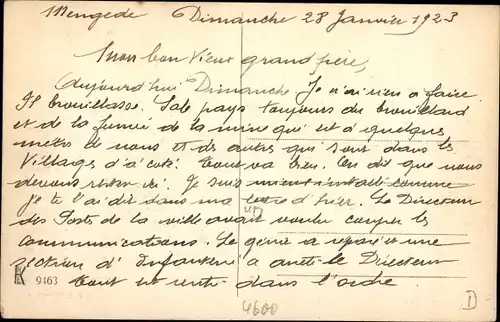 Mengede Dimanche 28 Janvier 1923
Mon bon Vieux grand père,
Aujourd'hui Dimanche Je n'ai rien a faire.
Il brouillasse. Sale pays toujours du brouillard
et de la fumée de la mine qui est a quelques
mètres de nous et des autres qui sont dans les
Villages d'à coté. Tout va bien. On dit que nous
devons rester ici. Je suis mieux installé comme
je te l'ai dit dans ma lettre d'hier. Le Directeur
des Postes de la ville avait voulu couper les
communications. Le génie a réparé et une
section d'Infanterie a arrêté le Directeur
Tout est rentré dans l'ordre
9463
4600
D